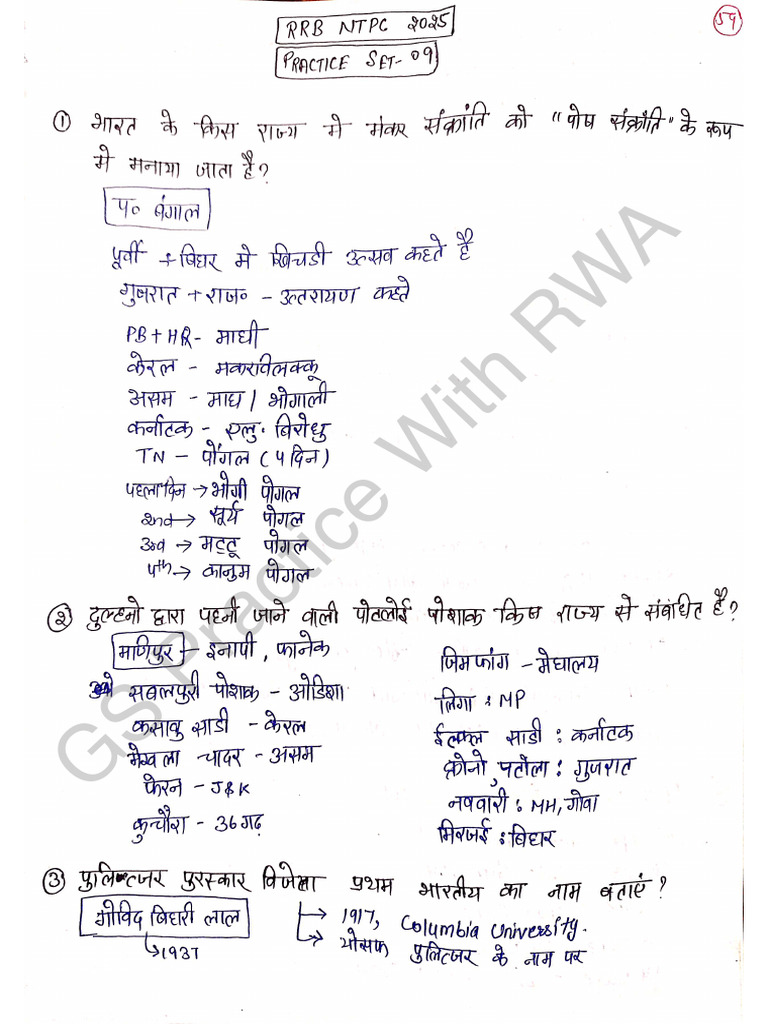 RRB NTPC 2025
59
PRACTICE SET-09
① भारत के किस राज्य मे मकर संक्रांति को "पोष संक्रांति" के रूप
मे मनाया जाता है?
प० बंगाल
पूर्वी + बिहार मे खिचडी उत्सव कहते है
गुजरात + राज० - उत्तरायण कहते
PB + HR - माघी
केरल - मकरविलक्कू
असम - माघ / भोगाली
कर्नाटक - एलु. बिरोधु
TN - पोंगल (4 दिन)
पहला दिन → भोगी पोगल
2nd → सूर्य पोगल
3rd → मट्टू पोगल
4th → कानुम पोगल
② दुल्हनो द्वारा पहनी जाने वाली पोटलोई पोशाक किस राज्य से संबंधित है?
मणिपुर - इनापी, फानेक
सबलपुरी पोशाक - ओडिशा
कसावु साडी - केरल
मेखला चादर - असम
फेरन - J&K
कुन्चौरा - 36गढ़
जिमफांग - मेघालय
लिगा : MP
ईल्कल साडी : कर्नाटक
क्रोनो, पटोला : गुजरात
नववारी : MH, गोवा
मिरजई : बिहार
③ पुलित्जर पुरस्कार विजेता प्रथम भारतीय का नाम बताएं?
गोविद बिहारी लाल
→ 1937
→ 1917, Columbia University.
→ योसफ पुलित्जर के नाम पर
GS Practice With RWA